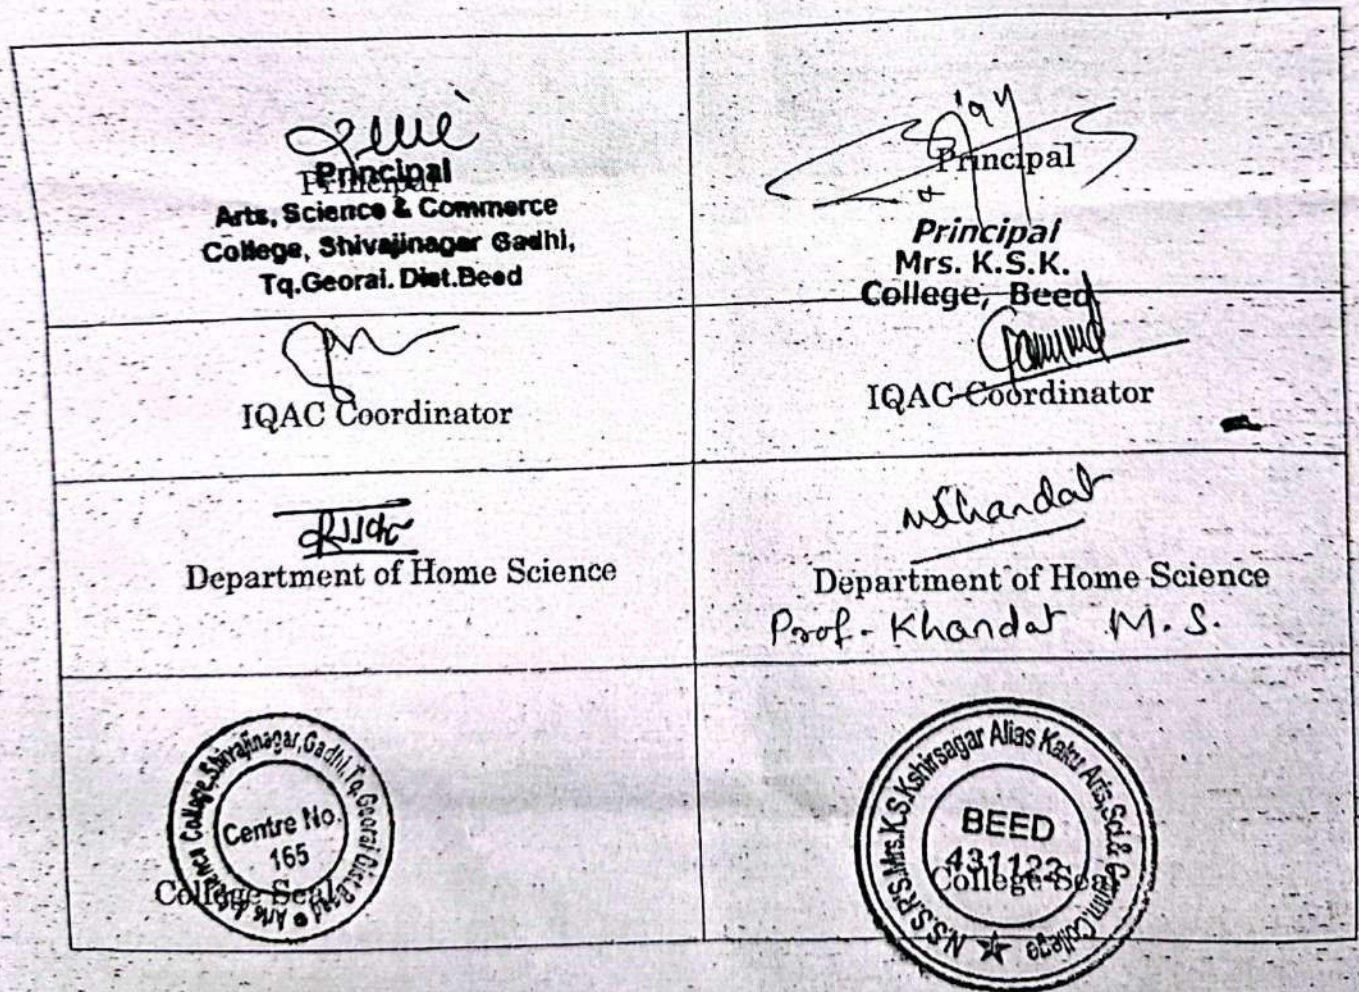 Principal
Principal
Arts, Science & Commerce
College, Shivajinagar Gadhi,
Tq.Georai. Dist.Beed
Principal
Principal
Mrs. K.S.K.
College, Beed
IQAC Coordinator
IQAC Coordinator
Department of Home Science
MSKhandat
Department of Home Science
Prof. Khandat M.S.
College, Shivajinagar, Gadhi, Tq. Georai Dist. Beed
Centre No.
165
College Seal
N.S.S.P.S. Mrs. K.S. Kshirsagar Alias Kaku Arts, Sci. & Comm. College
BEED
431122
College Seal